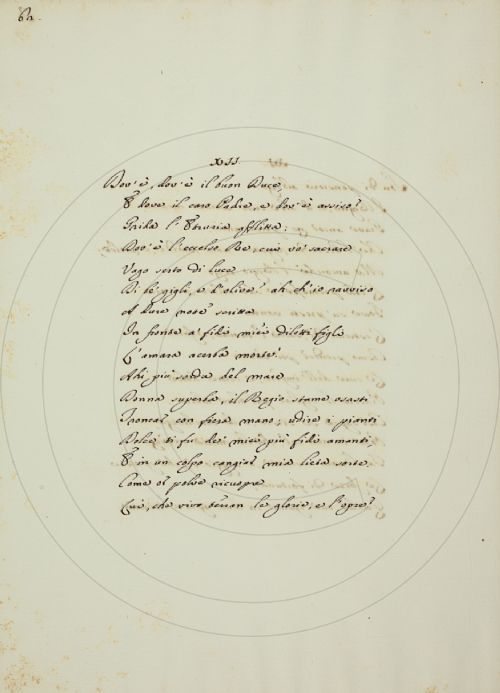 62.
XII
Dov' è, dov' è il buon Duce,
E dove il caro Padre, e dov' è assiso?
Grida l' Etruria afflitta;
Dov' è l' eccelso Re, cui vo' sacrare
Vago serto di luce
Di be' gigli, e d' olive? ah ch' io ravviso
A dure note scritta
In fronte a' fidi miei diletti figli
L' amara acerba morte.
Ahi più sorda del mare
Donna superba, il Regio stame osasti
Troncar con fiera mano; udire i pianti
Dolce ti fu de' miei più fidi amanti,
E in un colpo cangiar mia lieta sorte.
Come or polve ricuopre
Lui, che vivo the gloria, e l' opre?